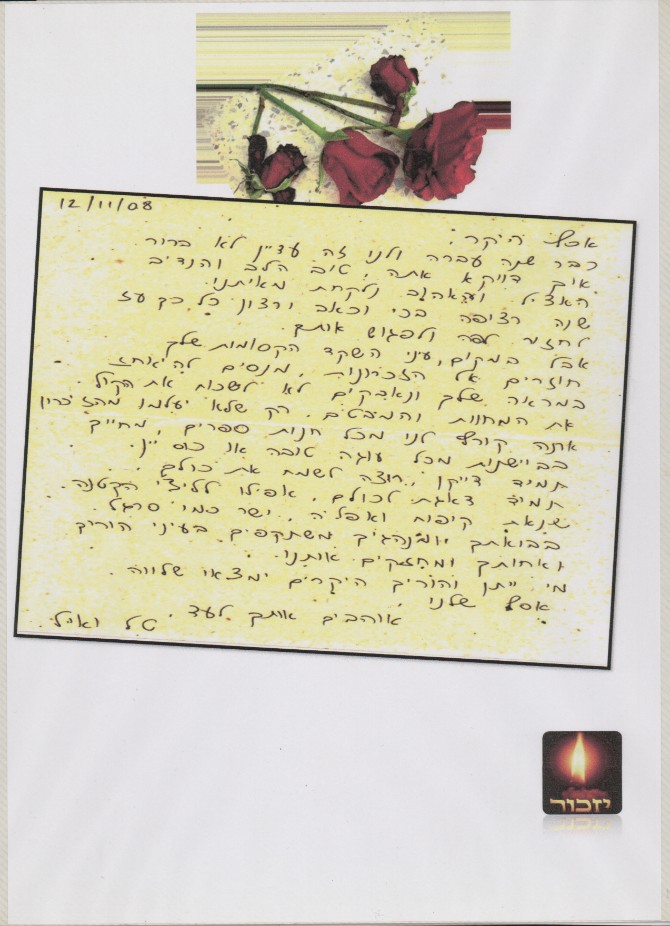 12/11/08
אסף היקר,
כבר שנה עברה ולנו זה עדיין לא ברור
איך דווקא אתה, טוב הלב והנדיב
האציל והאהוב נלקחת מאיתנו.
שנה רצופה בכי וכאב ורצון כל כך עז
לחזור לפה ולפגוש אותך.
אבל במקום, עיני השקד הקסומות שלך
חוזרים אל הזכרונות, מנסים להיאחז
במראה שלך ונאבקים לא לשכוח את הקול
את המחוות והמבטים. רק שלא יעלמו מהזיכרון
אתה קורץ לנו מכל חנות ספרים, מחייך
בביישנות מכל עוגה טובה או כוס יין.
תמיד דייקן, רוצה לשמח את כולם
תמיד דאגת לכולם, אפילו לליצי הקטנה.
שנאת קיפוח ואפליה, ישר כמו סרגל.
בבואתך ומנהגיך משתקפים בעיני הוריך
ואחותך ומחזקים אותנו.
מי ייתן והוריך היקרים ימצאו שלווה.
אסף שלנו,
אוהבים אותך לעד. טל ואיל.
יזכור